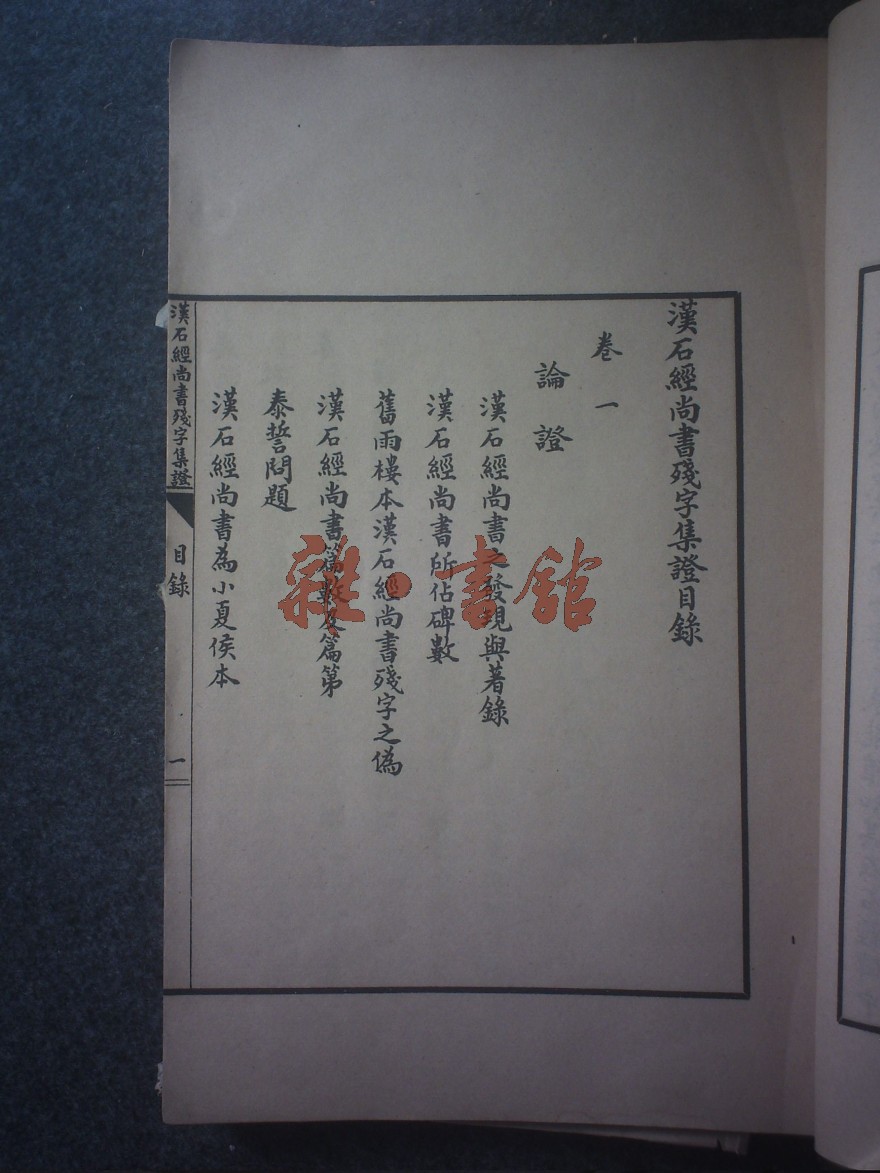 漢石經尚書殘字集證目錄
卷一
論證
漢石經尚書之發現與著錄
漢石經尚書所佔碑數
舊雨樓本漢石經尚書殘字之偽
漢石經尚書篇數及篇第
泰誓問題
漢石經尚書為小夏侯本
漢石經尚書殘字集證
目錄
一
雜·書館